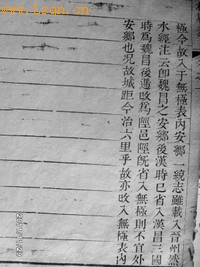 極今故入于無極表內安鄉 魏志雖載入晉州然
水經注云即魏昌之安鄉後漢時已省入漢昌三國
時為魏昌後遞改為陘邑陘旣省入無極則不宜外
安鄉也况故城距今治六里乎故亦收入無極表內